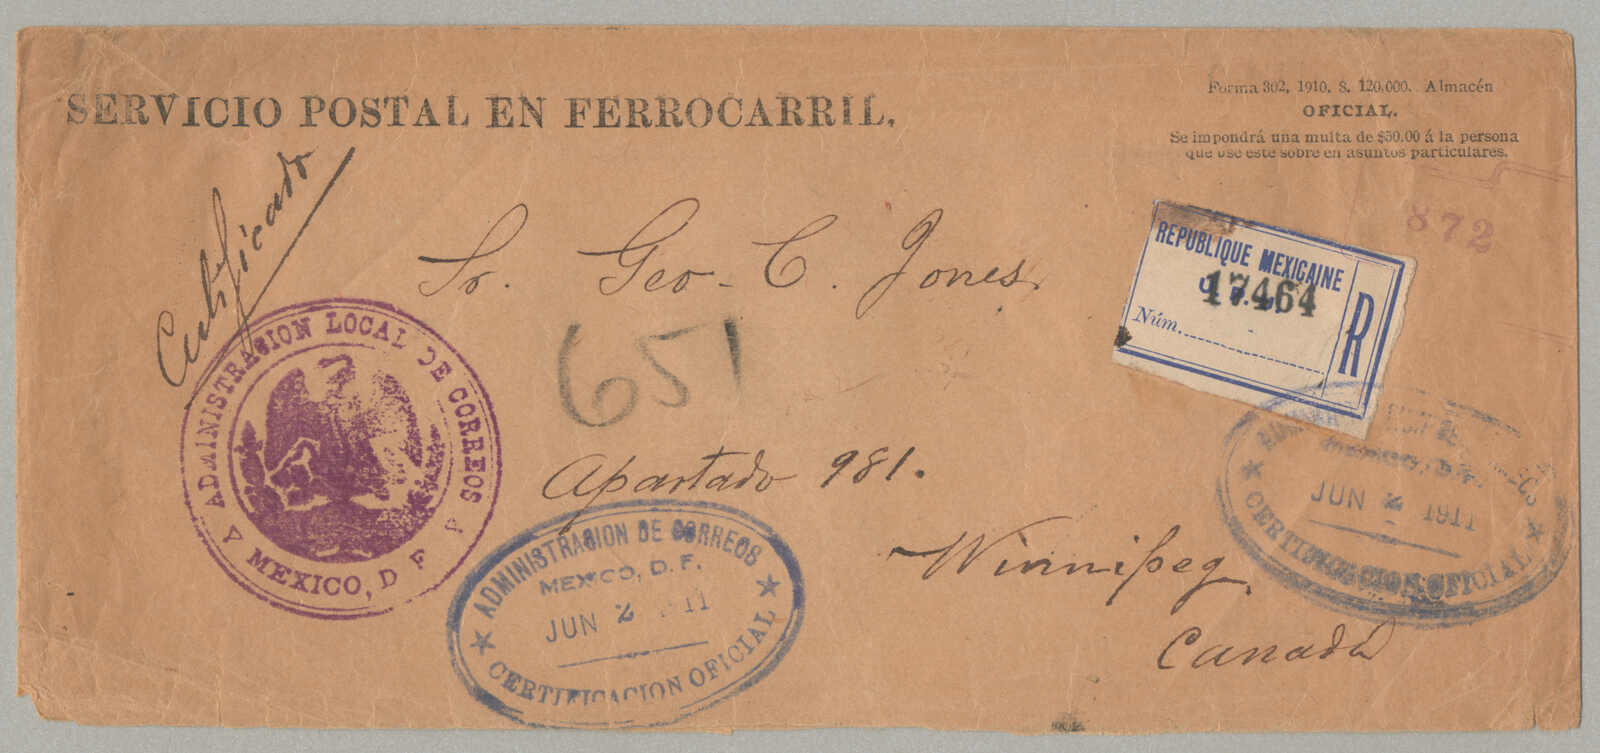 Forma 302, 1910. S. 120,000. Almacén
OFICIAL.
Se impondrá una multa de $50.00 á la persona
que use este sobre en asuntos particulares.
SERVICIO POSTAL EN FERROCARRIL.
Certificado
872
Sr. Geo. C. Jones
REPUBLIQUE MEXICAINE
17464
Núm.
R
651
ADMINISTRACION LOCAL DE CORREOS
MEXICO, D F
Apartado 981.
Winnipeg
Canadá
ADMINISTRACION DE CORREOS
MEXICO, D. F.
JUN 2 1911
CERTIFICACION OFICIAL
JUN 2 1911
CERTIFICACION OFICIAL